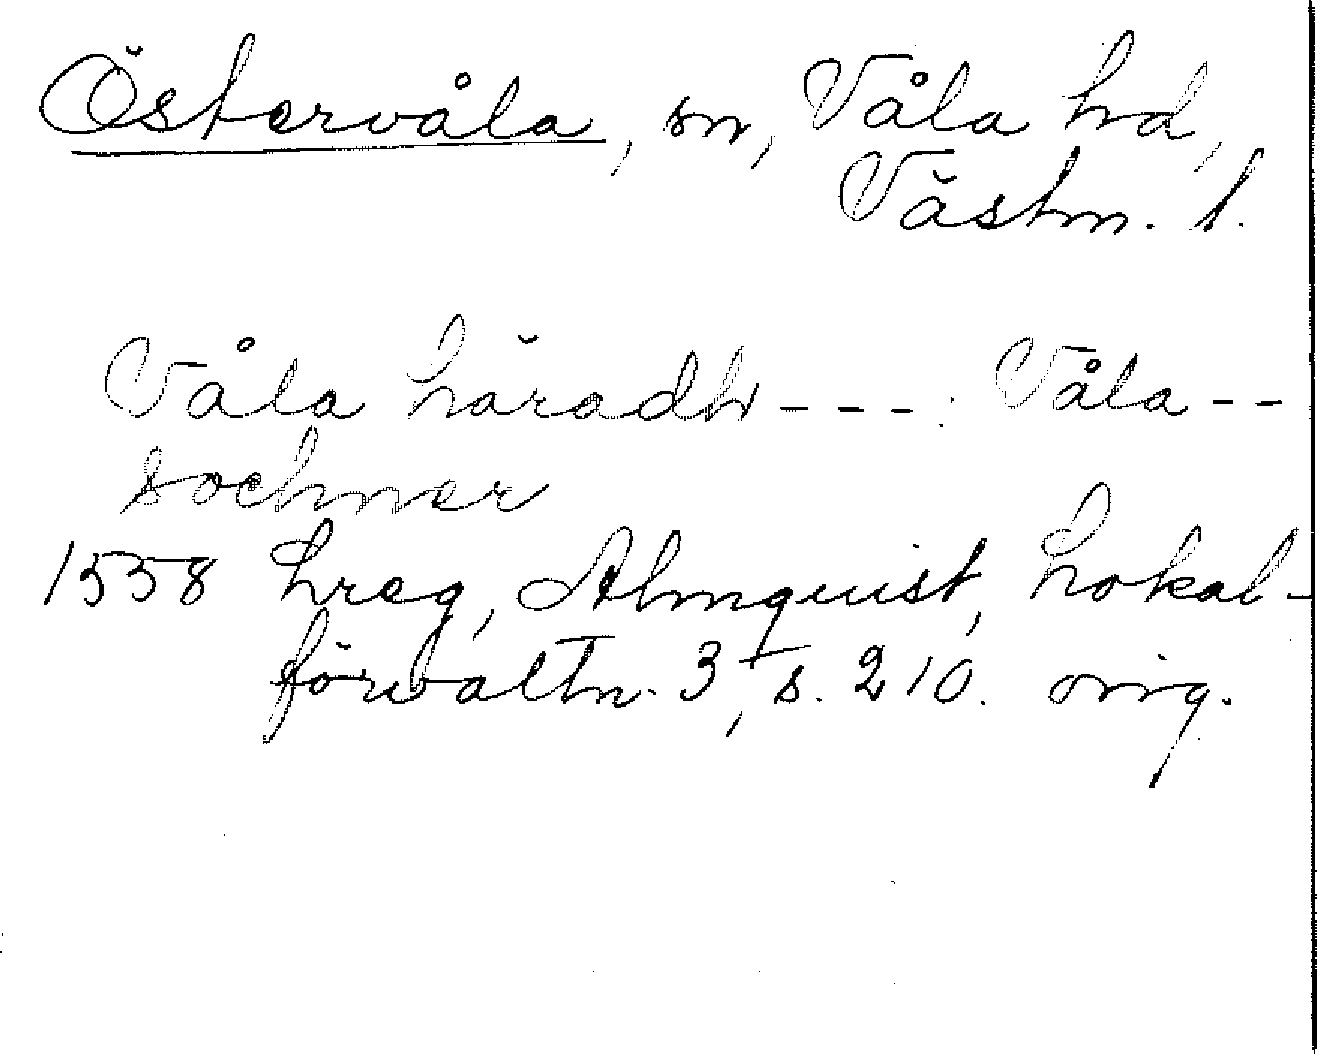 Östervåla, sn, Våla hd,
Västm. l.
Våla häradh - - - : Våla - -
sochner
1558 Lreg, Almquist, Lokal-
förvaltn. 3, s. 210. orig.